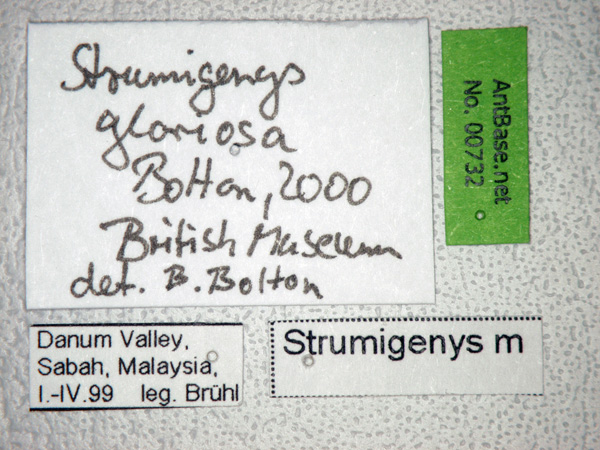 Strumigenys
gloriosa
Bolton, 2000
British Museum
det. B. Bolton
AntBase.net
No. 00732
Danum Valley,
Sabah, Malaysia,
I.-IV.99 leg. Brühl
Strumigenys m